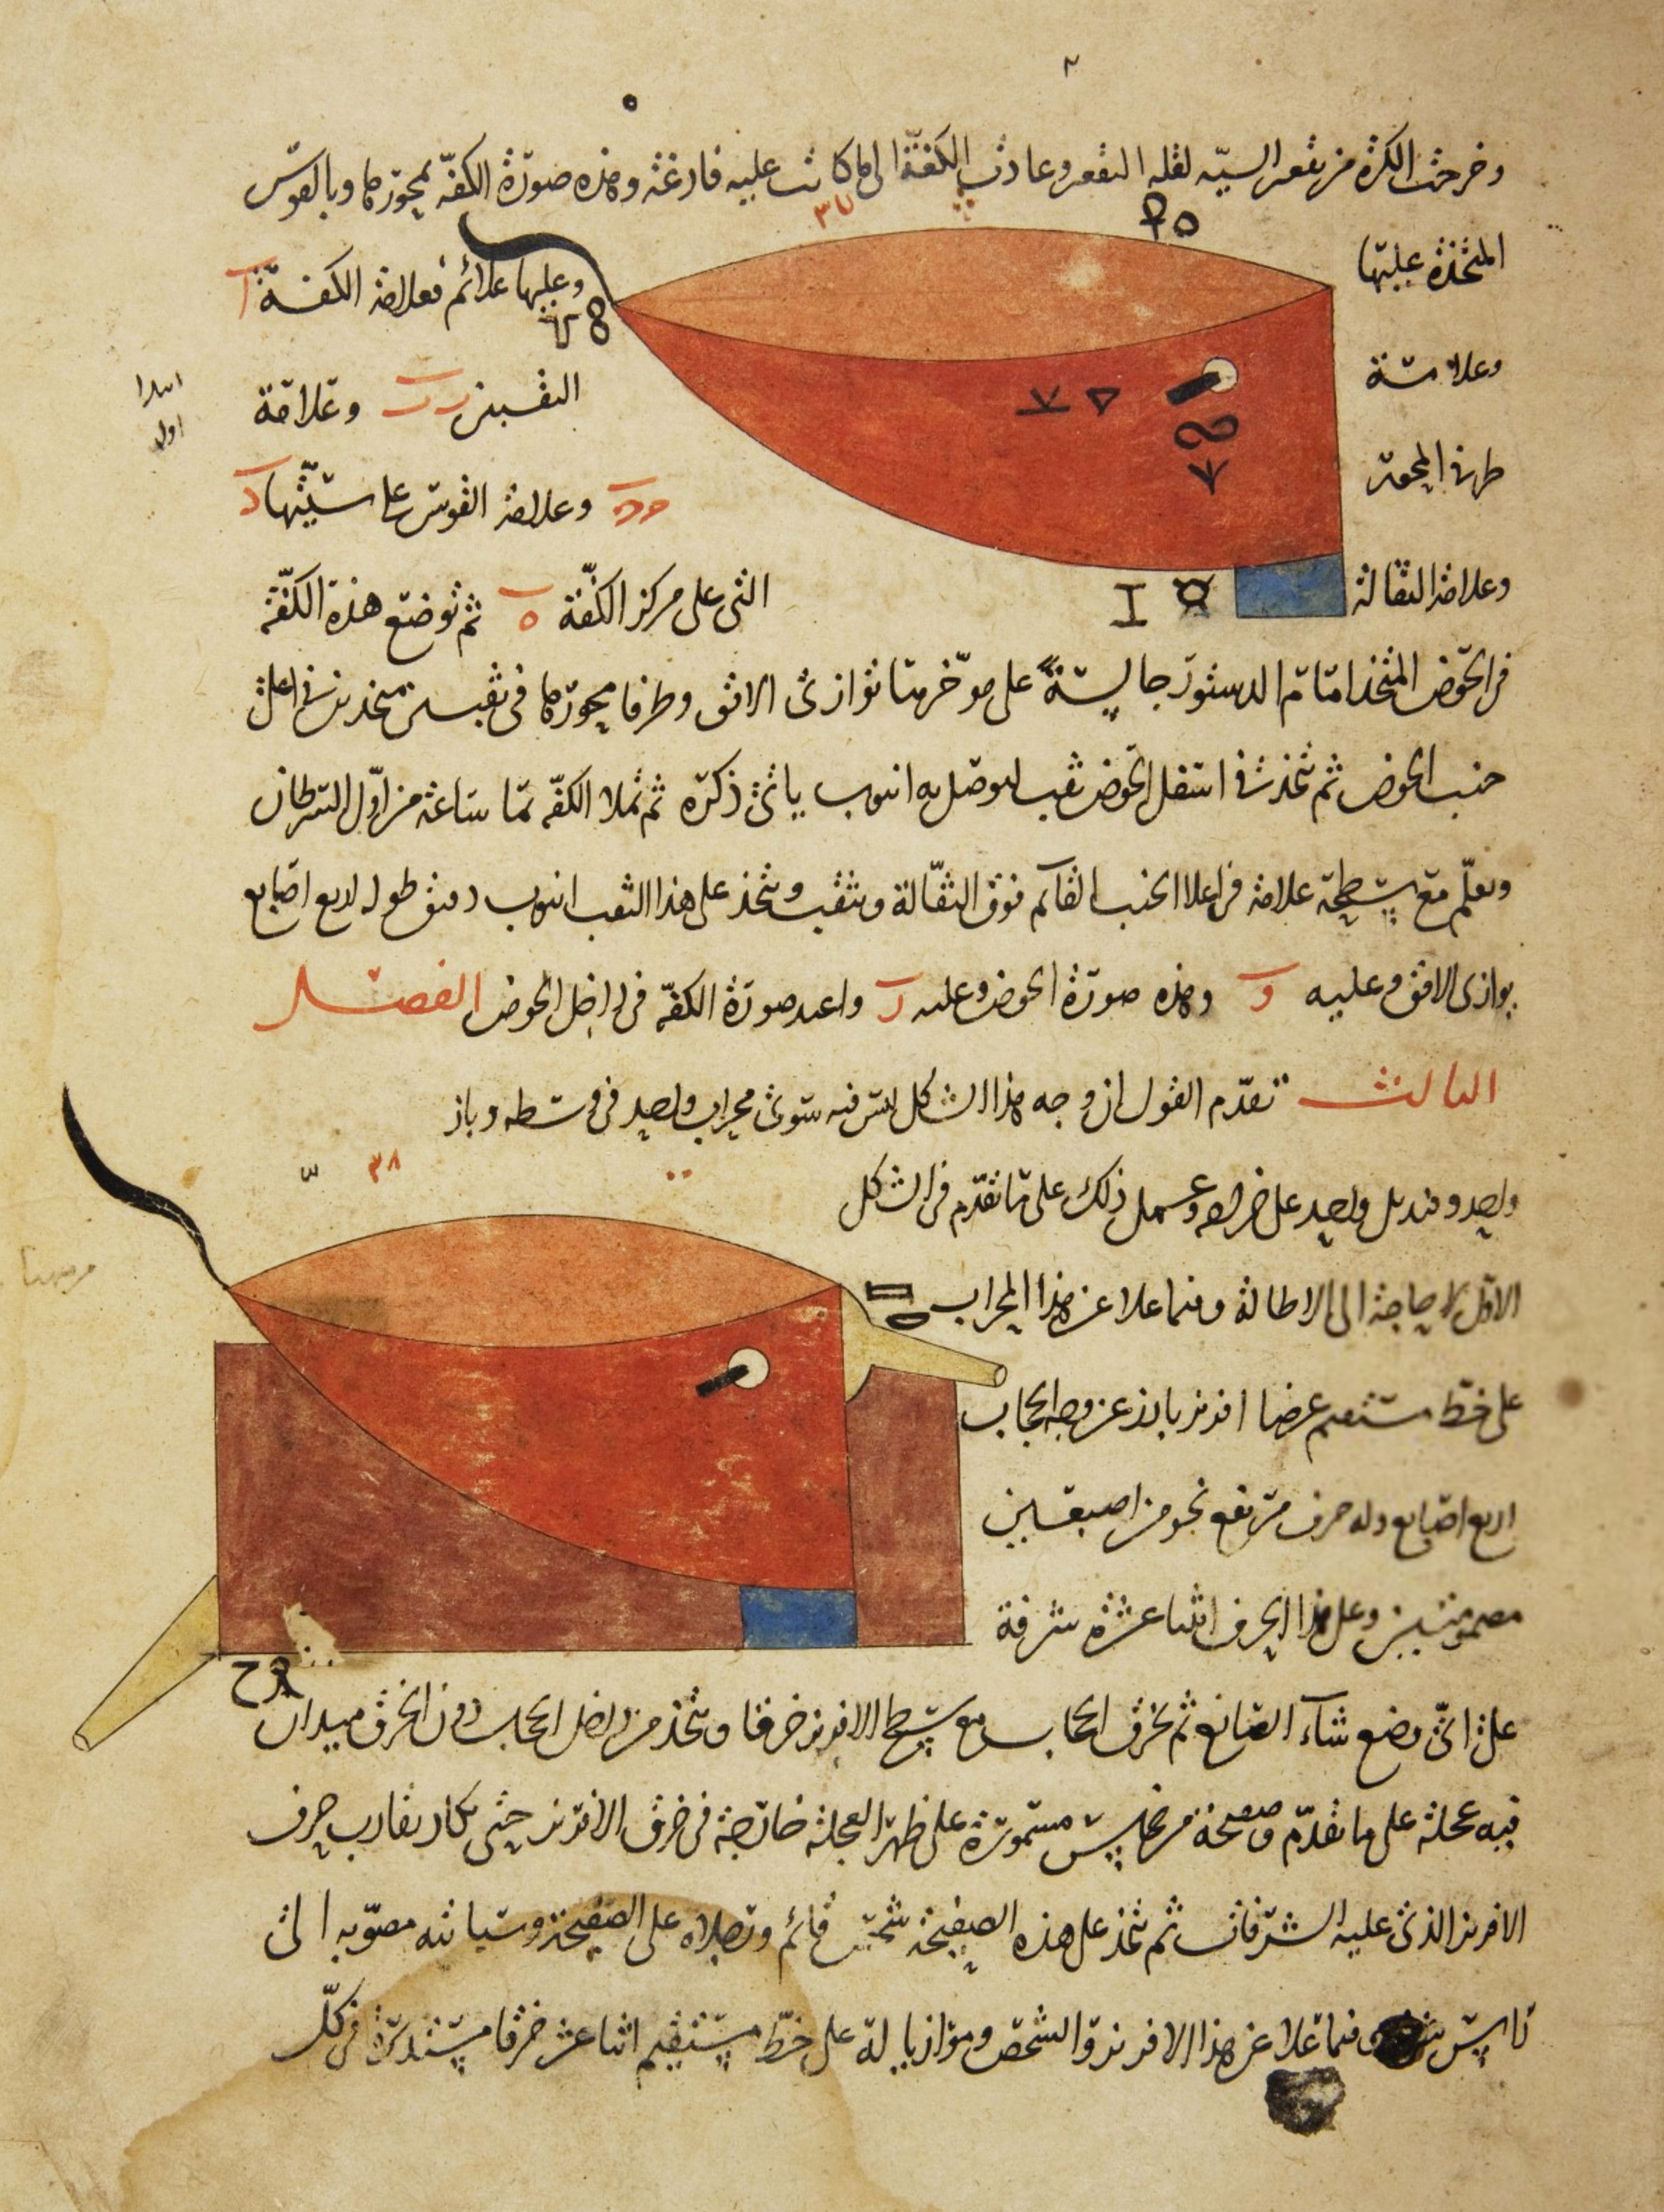 وخرجت الكرة من ثقب السية لثقله الثقب وعادت الكفة الى ما كانت عليه فارغة وهذه صورة الكفة بمحورها وبالقوس
٣٧
المتخذة عليها
وعليها علائم فعلامة الكفة آ
وعلامة
الثقبين ب وعلامة
طرفي المحور
وعلامة القوس على سيتها د
وعلامة الثقالة
التي على مركز الكفة ه ثم توضع هذه الكفة
في الحوض المتخذ امام الدستور جالسة على مؤخرها توازى الافق وطرفا محورها فى ثقبين متخذين فى اعلى
جنب الحوض ثم تتخذ فى اسفل الحوض ثقب ليوصل به انبوب ياتى ذكره ثم تملا الكفة بما ساعة من اول السرطان
وتعلم مع سطحة علامة فى اعلا الجنب القآئم فوق الثقالة وتثقب ويتخذ على هذا الثقب انبوب دقيق طوله اربع اصابع
يوازى الافق وعليه و وهذه صورة الحوض وعليه ز واعيد صورة الكفة فى داخل الحوض الفصل
الثالث تقدم القول ان وجه هذا الشكل ليس فيه سوى محراب واحد فى وسطه وباز
٣٨
واحد وقنديل واحد على ضراطه وعمل ذلك على ما تقدم فى الشكل
الاول لا حاجة الى الاطالة وفيما علا عن هذا المحراب
على خط مستقيم عرضا افريز بارز عن وجه الحجاب
اربع اصابع وله حرف مرتفع نحو من اصبعين
مضمومتين وعلى هذا الحرف اثنا عشرة شرفة
على اى وضع شآء الصانع ثم يخرق الحجاب مع سطح الافريز خرقا ويتخذ من داخل الحجاب دون الخرق ميدان
فيه عجلة على ما تقدم وصفيحة من نحاس مستمورة على ظهر العجلة خارجة فى خرق الافريز حتى تكاد تقارب حرف
الافريز الذى عليه الشرفات ثم يتخذ على هذه الصفيحة شخص قائم وقدماه على الصفيحة وسبابته مصوبه الى
راس شرفة فيما علا عن هذا الافريز والشخص وموازيا له على خط مستقيم اثنا عشر خرقا مستديرة فى كل